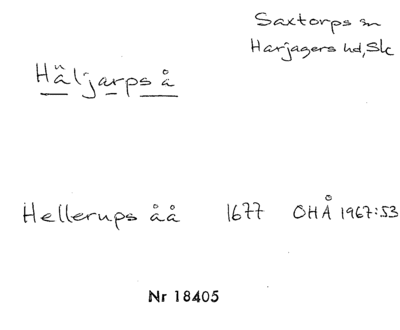 Saxtorps sn
Harjagers hd, Sk
Häljarps å
Hellerups åå 1677 OHÅ 1967:53
Nr 18405